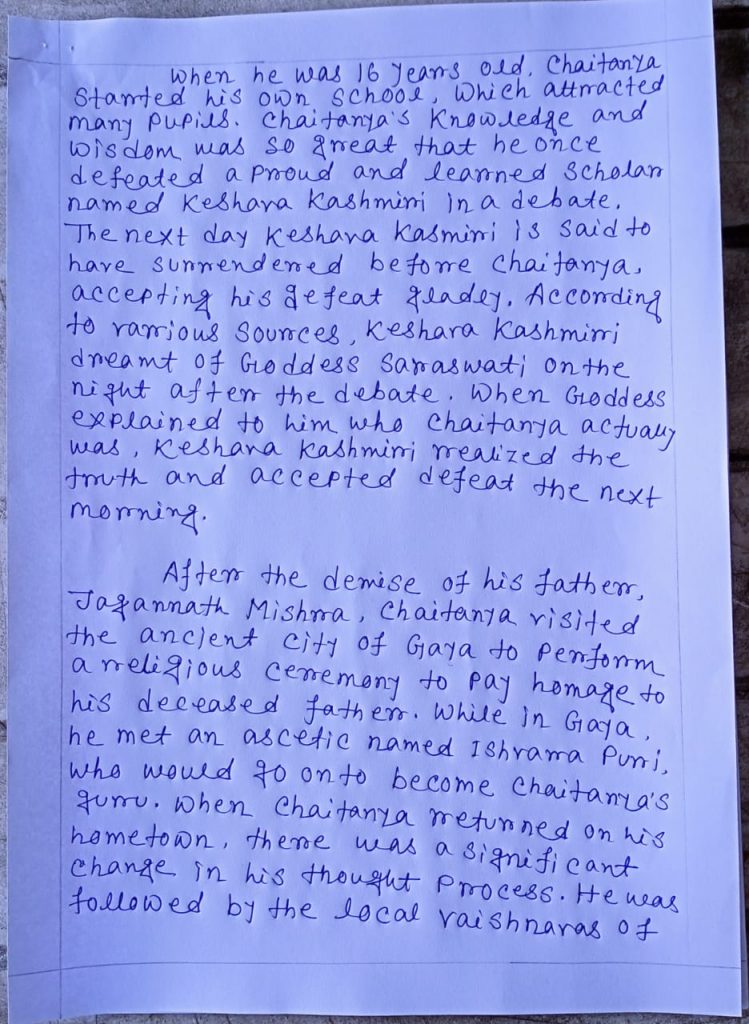 When he was 16 years old, Chaitanya
Started his own school, which attracted
many pupils. Chaitanya's Knowledge and
wisdom was so great that he once
defeated a proud and learned Scholar
named Keshava Kashmiri in a debate.
The next day Keshava Kasmiri is said to
have surrendered before Chaitanya,
accepting his defeat gladly. According
to various sources, Keshava Kashmiri
dreamt of Goddess Saraswati on the
night after the debate. When Goddess
explained to him who Chaitanya actually
was, Keshava Kashmiri realized the
truth and accepted defeat the next
morning.
After the demise of his father,
Jagannath Mishra, Chaitanya visited
the ancient city of Gaya to perform
a religious ceremony to pay homage to
his deceased father. While in Gaya,
he met an ascetic named Ishvara Puri,
who would go on to become Chaitanya's
guru. When Chaitanya returned on his
hometown, there was a significant
change in his thought process. He was
followed by the local vaishnavas of